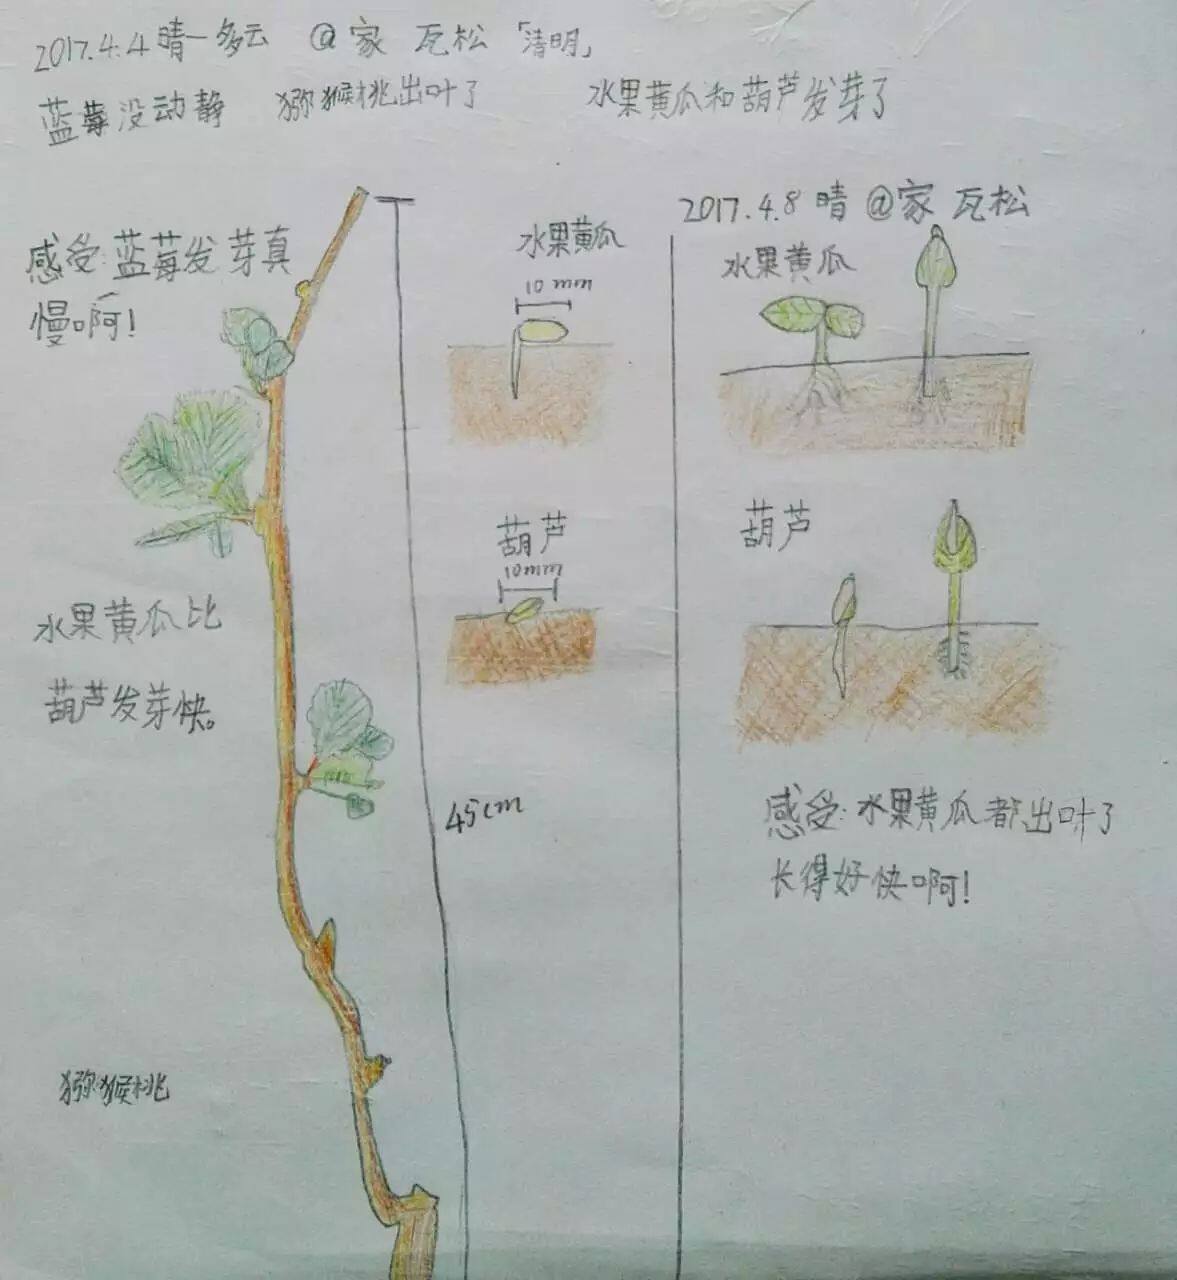 2017.4.4 晴-多云 @家 瓦松「清明」
蓝莓没动静 猕猴桃出叶了 水果黄瓜和葫芦发芽了
感受:蓝莓发芽真
慢啊!
水果黄瓜
10mm
葫芦
10mm
水果黄瓜比
葫芦发芽快。
45cm
猕猴桃
2017.4.8 晴 @家 瓦松
水果黄瓜
葫芦
感受:水果黄瓜都出叶了
长得好快啊!